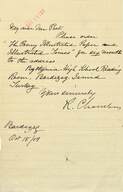 My dear Mr. Peet
Please order
the Penny Illustrated Paper and
Illustrated Times for six months
to the address
Bithynia High School Reading
Room, Bardezag, Ismid
Turkey
Yours sincerely
R. Chambers
Bardezag
Oct 15/09